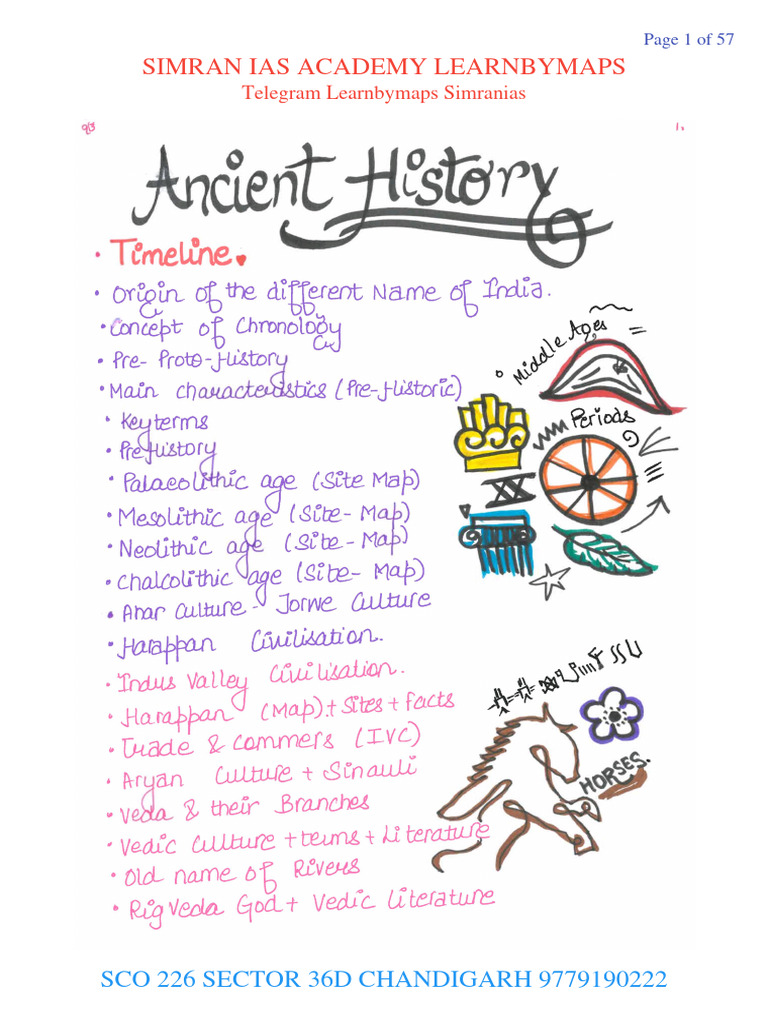 Page 1 of 57
SIMRAN IAS ACADEMY LEARNBYMAPS
Telegram Learnbymaps Simranias
1.
Ancient History
• Timeline
• Origin of the different Name of India.
• Concept of Chronology
• Pre- Proto-History
• Main characteristics (Pre-Historic)
• Keyterms
• PreHistory
• Palaeolithic age (Site Map)
• Mesolithic age (Site-Map)
• Neolithic age (Site-Map)
• Chalcolithic age (Site- Map)
• Ahar Culture - Jorwe Culture
• Harappan Civilisation.
• Indus Valley Civilisation.
• Harappan (Map)+Sites+facts
• Trade & Commers (IVC)
• Aryan Culture + Sinauli
• Veda & their Branches
• Vedic Culture + terms + Literature
• Old name of Rivers
• Rig Veda God + Vedic literature
Middle Ages
Periods
XX
HORSES.
SCO 226 SECTOR 36D CHANDIGARH 9779190222